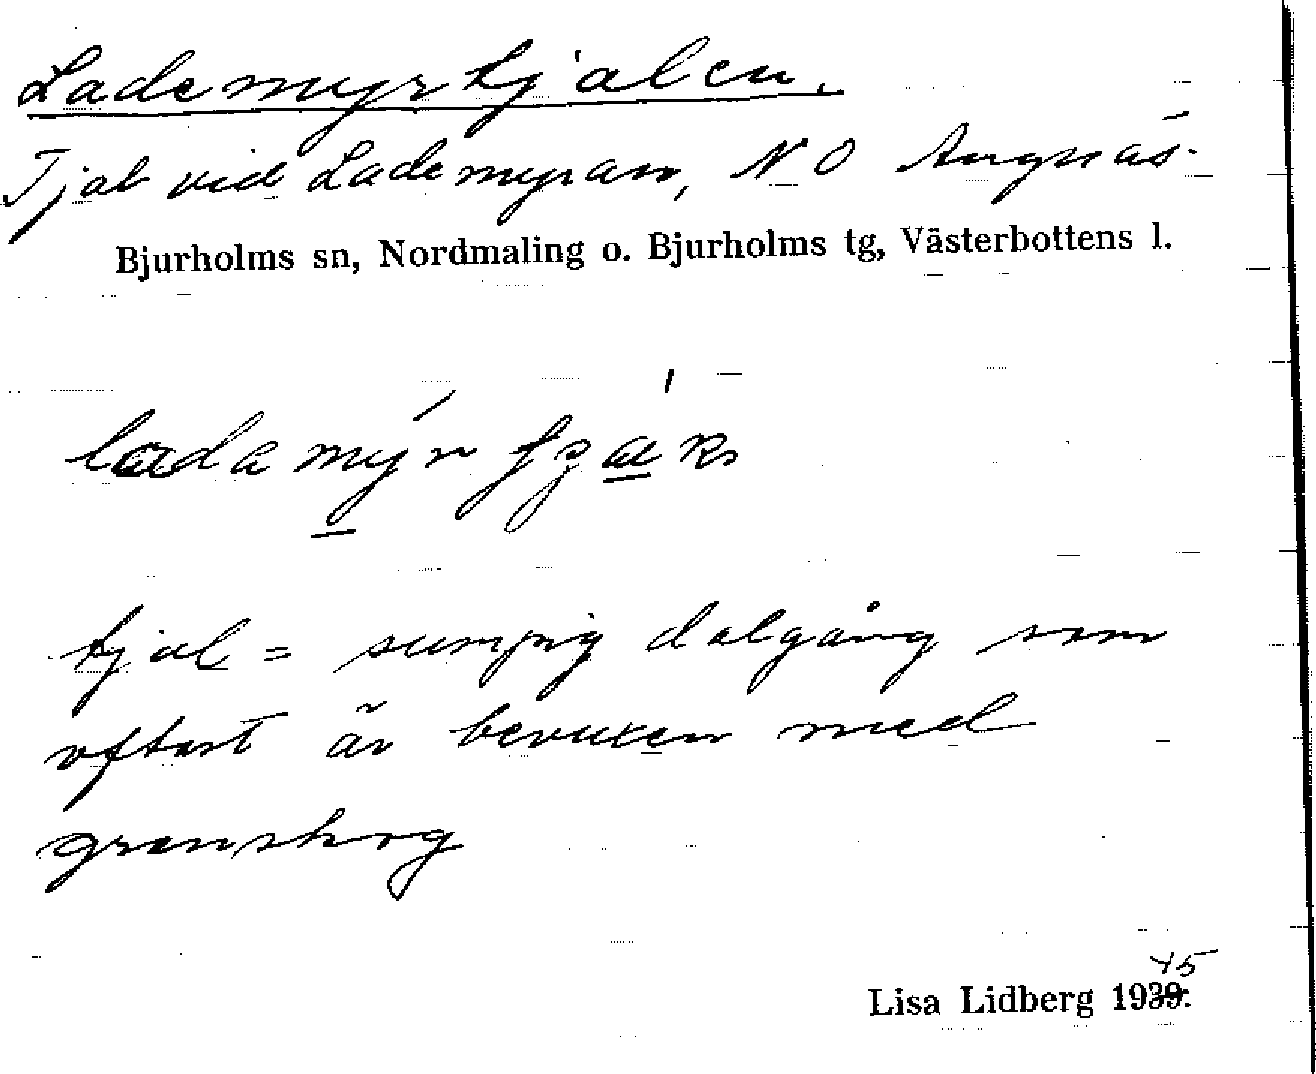 Lademyrtjalen.
Tjal vid Lademyran, NO Angnäs.
Bjurholms sn, Nordmaling o. Bjurholms tg, Västerbottens l.
tjal = sumpig dalgång som
oftast är bevuxen med
granskog
45
Lisa Lidberg 1939.